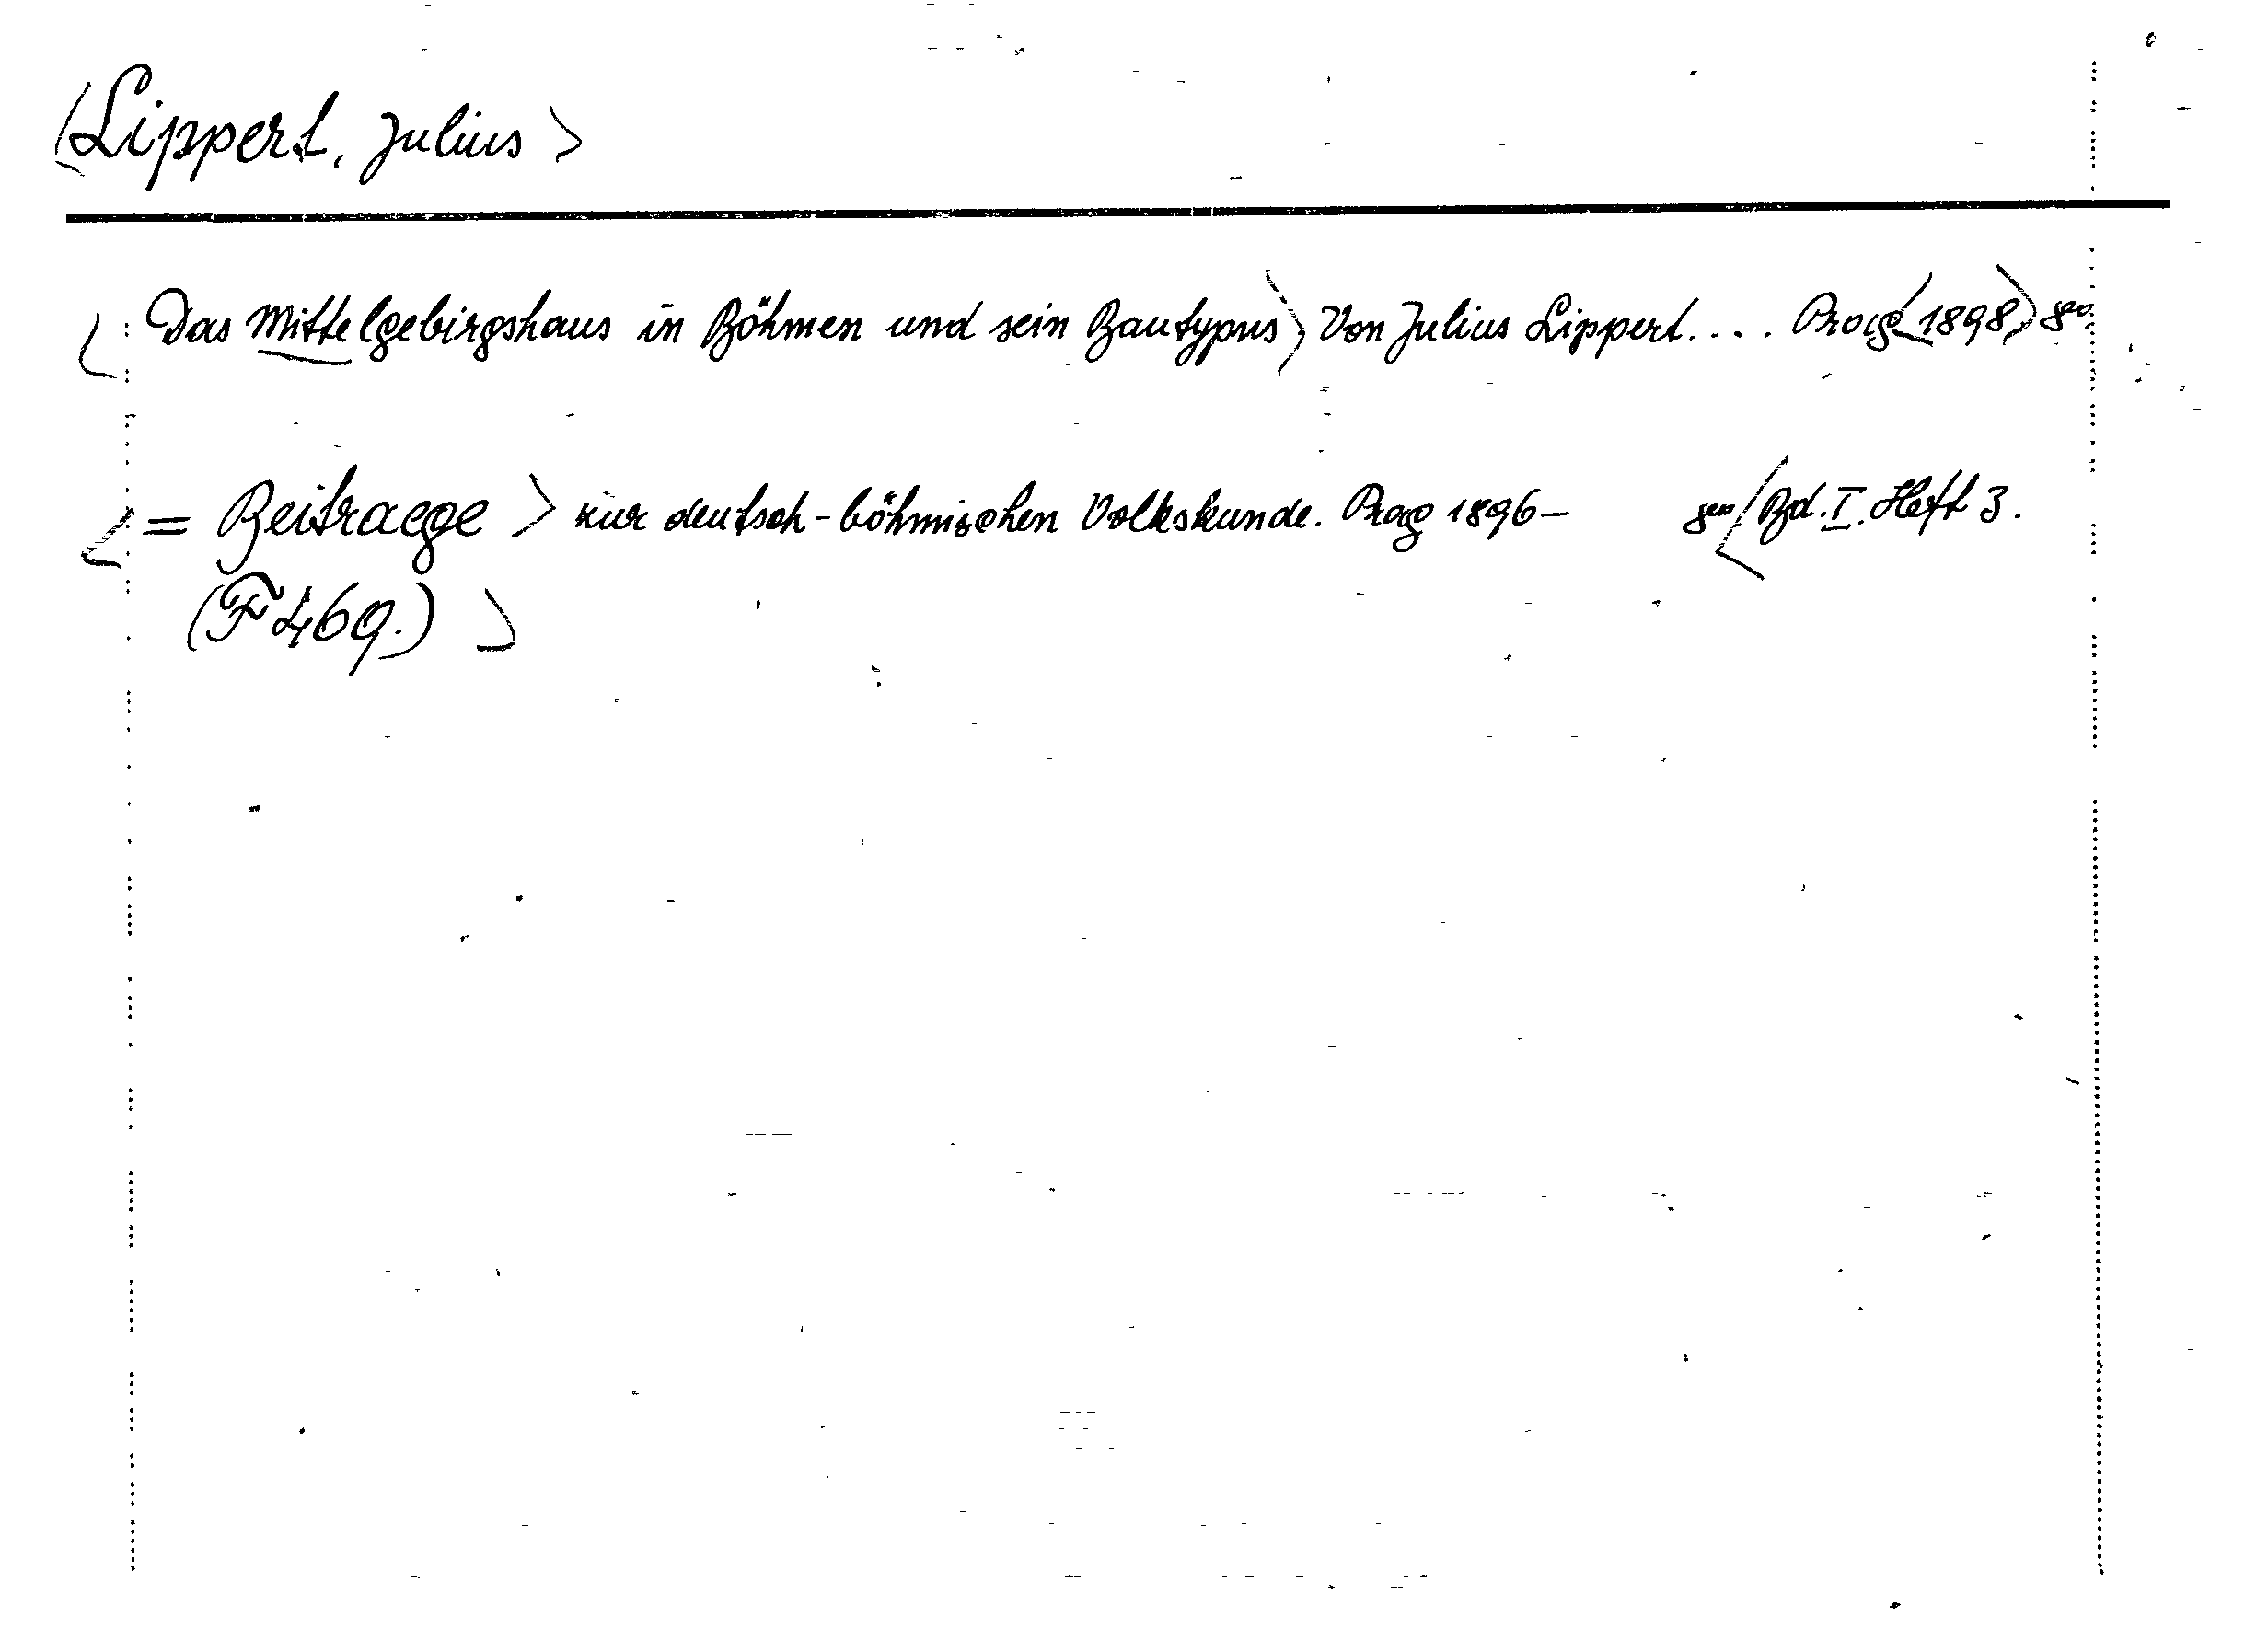 <Lippert, Julius>
<Das Mittelgebirgshaus in Böhmen und sein Bautypus> Von Julius Lippert.... Prag <1898> 8°.
<= Beitraege> zur deutsch-böhmischen Volkskunde. Prag 1896- 8° <Bd. I. Heft 3.
(F 469.)>